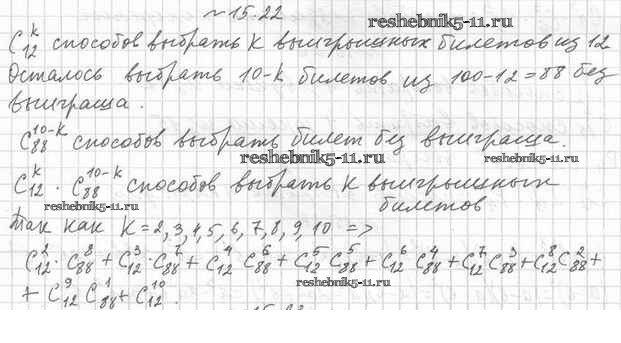 №15.22
C₁₂ᵏ способов выбрать k выигрышных билетов из 12
reshebnik5-11.ru
Осталось выбрать 10-k билетов из 100-12=88 без
выиграша.
C₈₈¹⁰⁻ᵏ способов выбрать билет без выиграша.
reshebnik5-11.ru
reshebnik5-11.ru
C₁₂ᵏ · C₈₈¹⁰⁻ᵏ способов выбрать k выигрышных
билетов
reshebnik5-11.ru
Так как k=2,3,4,5,6,7,8,9,10 =>
C₁₂² · C₈₈⁸ + C₁₂³ · C₈₈⁷ + C₁₂⁴ C₈₈⁶ + C₁₂⁵ C₈₈⁵ + C₁₂⁶ C₈₈⁴ + C₁₂⁷ C₈₈³ + C₁₂⁸ C₈₈² +
+ C₁₂⁹ C₈₈¹ + C₁₂¹⁰.
reshebnik5-11.ru